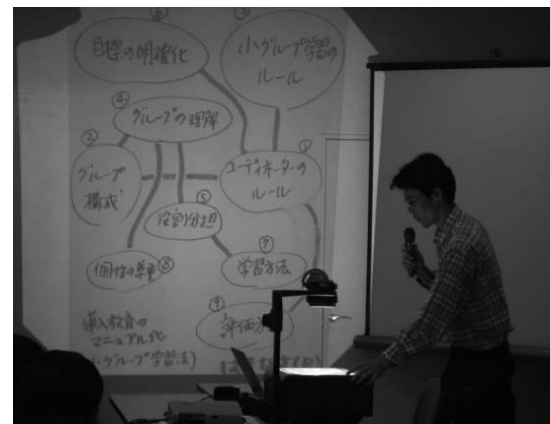 ⑥
目標の明確化
③
小グループ学習の
ルール
④
グループの理解
②
グループ
構成
①
コーディネーターの
ルール
⑤
役割分担
個性の尊重⑧
⑦
学習方法
⑨
評価方法
導入教育の
マニュアル化
小グループ学習法)